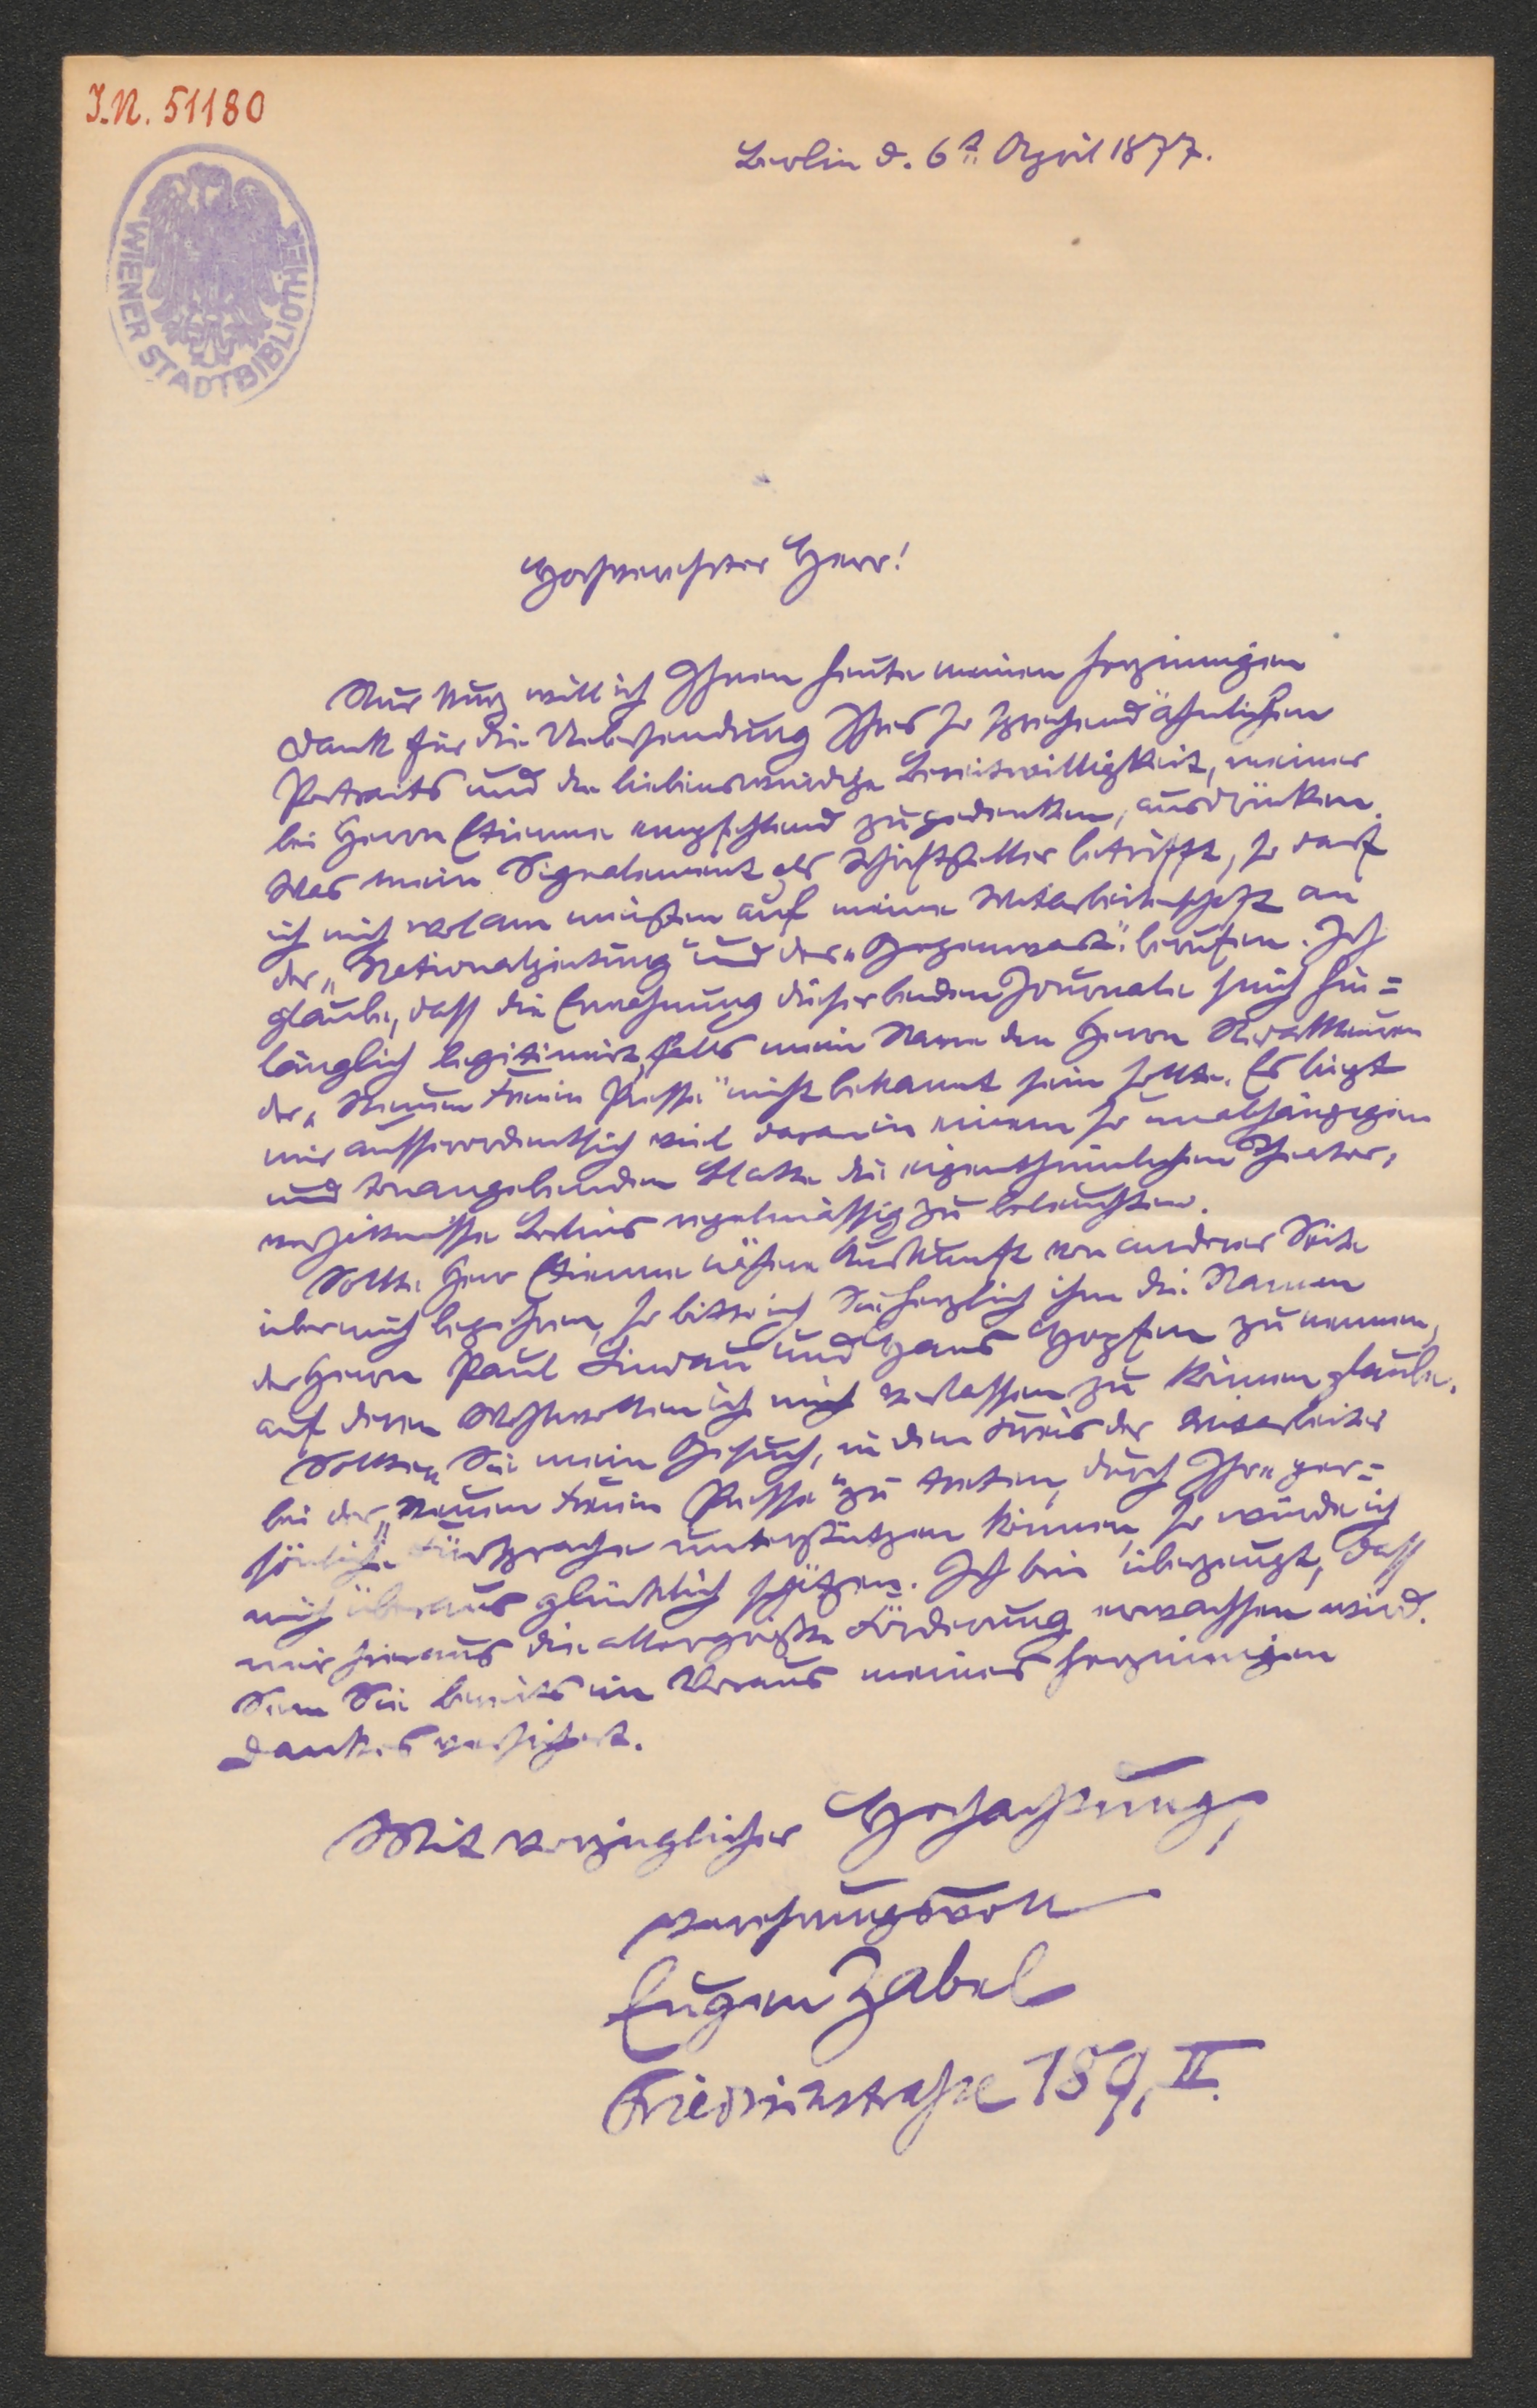 I.N. 51180
WIENER STADTBIBLIOTHEK
Berlin d. 6t. April 1877.
Hochverehrter Herr!
Nur kurz will ich Ihnen heute meinen herzinnigen
Dank für die Uebersendung Ihres so sprechend ähnlichen
Portraits und die liebenswürdige Bereitwilligkeit, meiner
bei Herrn Etienne empfehlend zu gedenken, ausdrücken.
Was mein Signalement als Schriftsteller betrifft, so darf
ich mich wol am meisten auf meine Mitarbeiterschaft an
der „Nationalzeitung“ und der „Gegenwart“ berufen. Ich
glaube, dass die Erwähnung dieser beiden Journale mich hin=
länglich legitimirt, falls mein Name den Herrn Redakteuren
der „Neuen Freien Presse“ nicht bekannt sein sollte. Es liegt
mir ausserordentlich viel daran in einem so unabhängigen
und tonangebenden Blatte die eigenthümlichen Theater-
verhältnisse Berlins regelmässig zu beleuchten.
Sollte Herr Etienne nähere Auskunft von anderer Seite
über mich begehren, so bitte ich Sie herzlich ihm die Namen
der Herrn Paul Lindau und Hans Hopfen zu nennen,
auf deren Wohlwollen ich mich verlassen zu können glaube.
Sollten Sie mein Gesuch, in den Kreis der Mitarbeiter
bei der „Neuen Freien Presse“ zu treten, durch Ihre per=
sönliche Fürsprache unterstützen können, so würde ich
mich überaus glücklich schätzen. Ich bin überzeugt, dass
mir hieraus die allergrößte Förderung erwachsen wird.
Seien Sie bereits im Voraus meines herzinnigen
Dankes versichert.
Mit vorzüglicher Hochachtung,
verehrungsvoll
Eugen Zabel
Friedrichstraße 189, II.